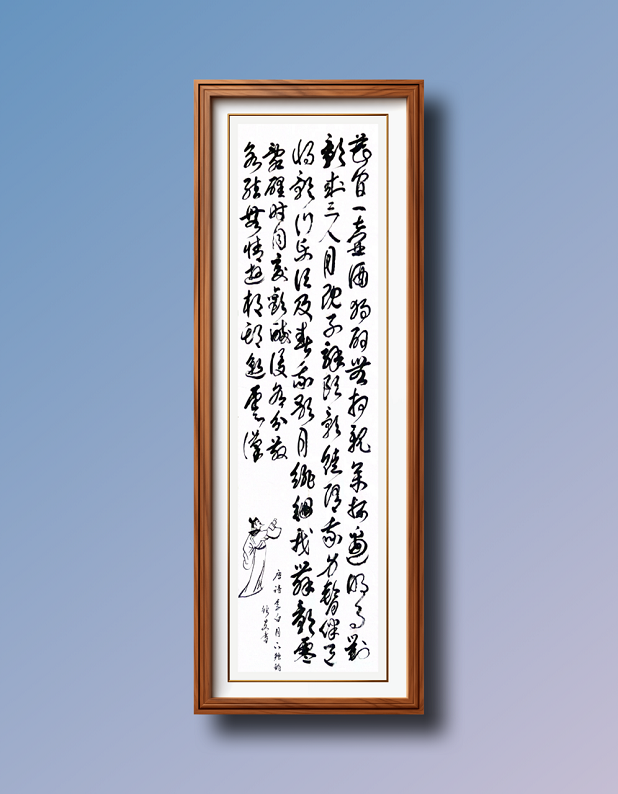 花間一壺酒獨酌無相親舉杯邀明月對
影成三人月既不解飲影徒隨我身暫伴月
將影行樂須及春我歌月徘徊我舞影零
亂醒时同交歡醉後各分散
永結無情遊相期邈雲漢
唐诗李白月下独酌
書